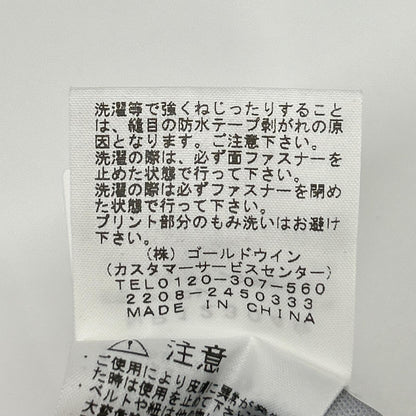 洗濯等で強くねじったりすること
は、縫目の防水テープ剥がれの原
因となります。ご注意下さい。
洗濯の際は、必ず面ファスナーを
止めた状態で行って下さい。
洗濯の際は必ずファスナーを閉め
た状態で行って下さい。
プリント部分のもみ洗いはお避け
下さい。
(株) ゴールドウイン
(カスタマーサービスセンター)
TEL0120-307-560
2208-2450333
MADE IN CHINA
注意
ご使用により皮膚に異常が
た時は使用を止めて下
ベルトや紐は他